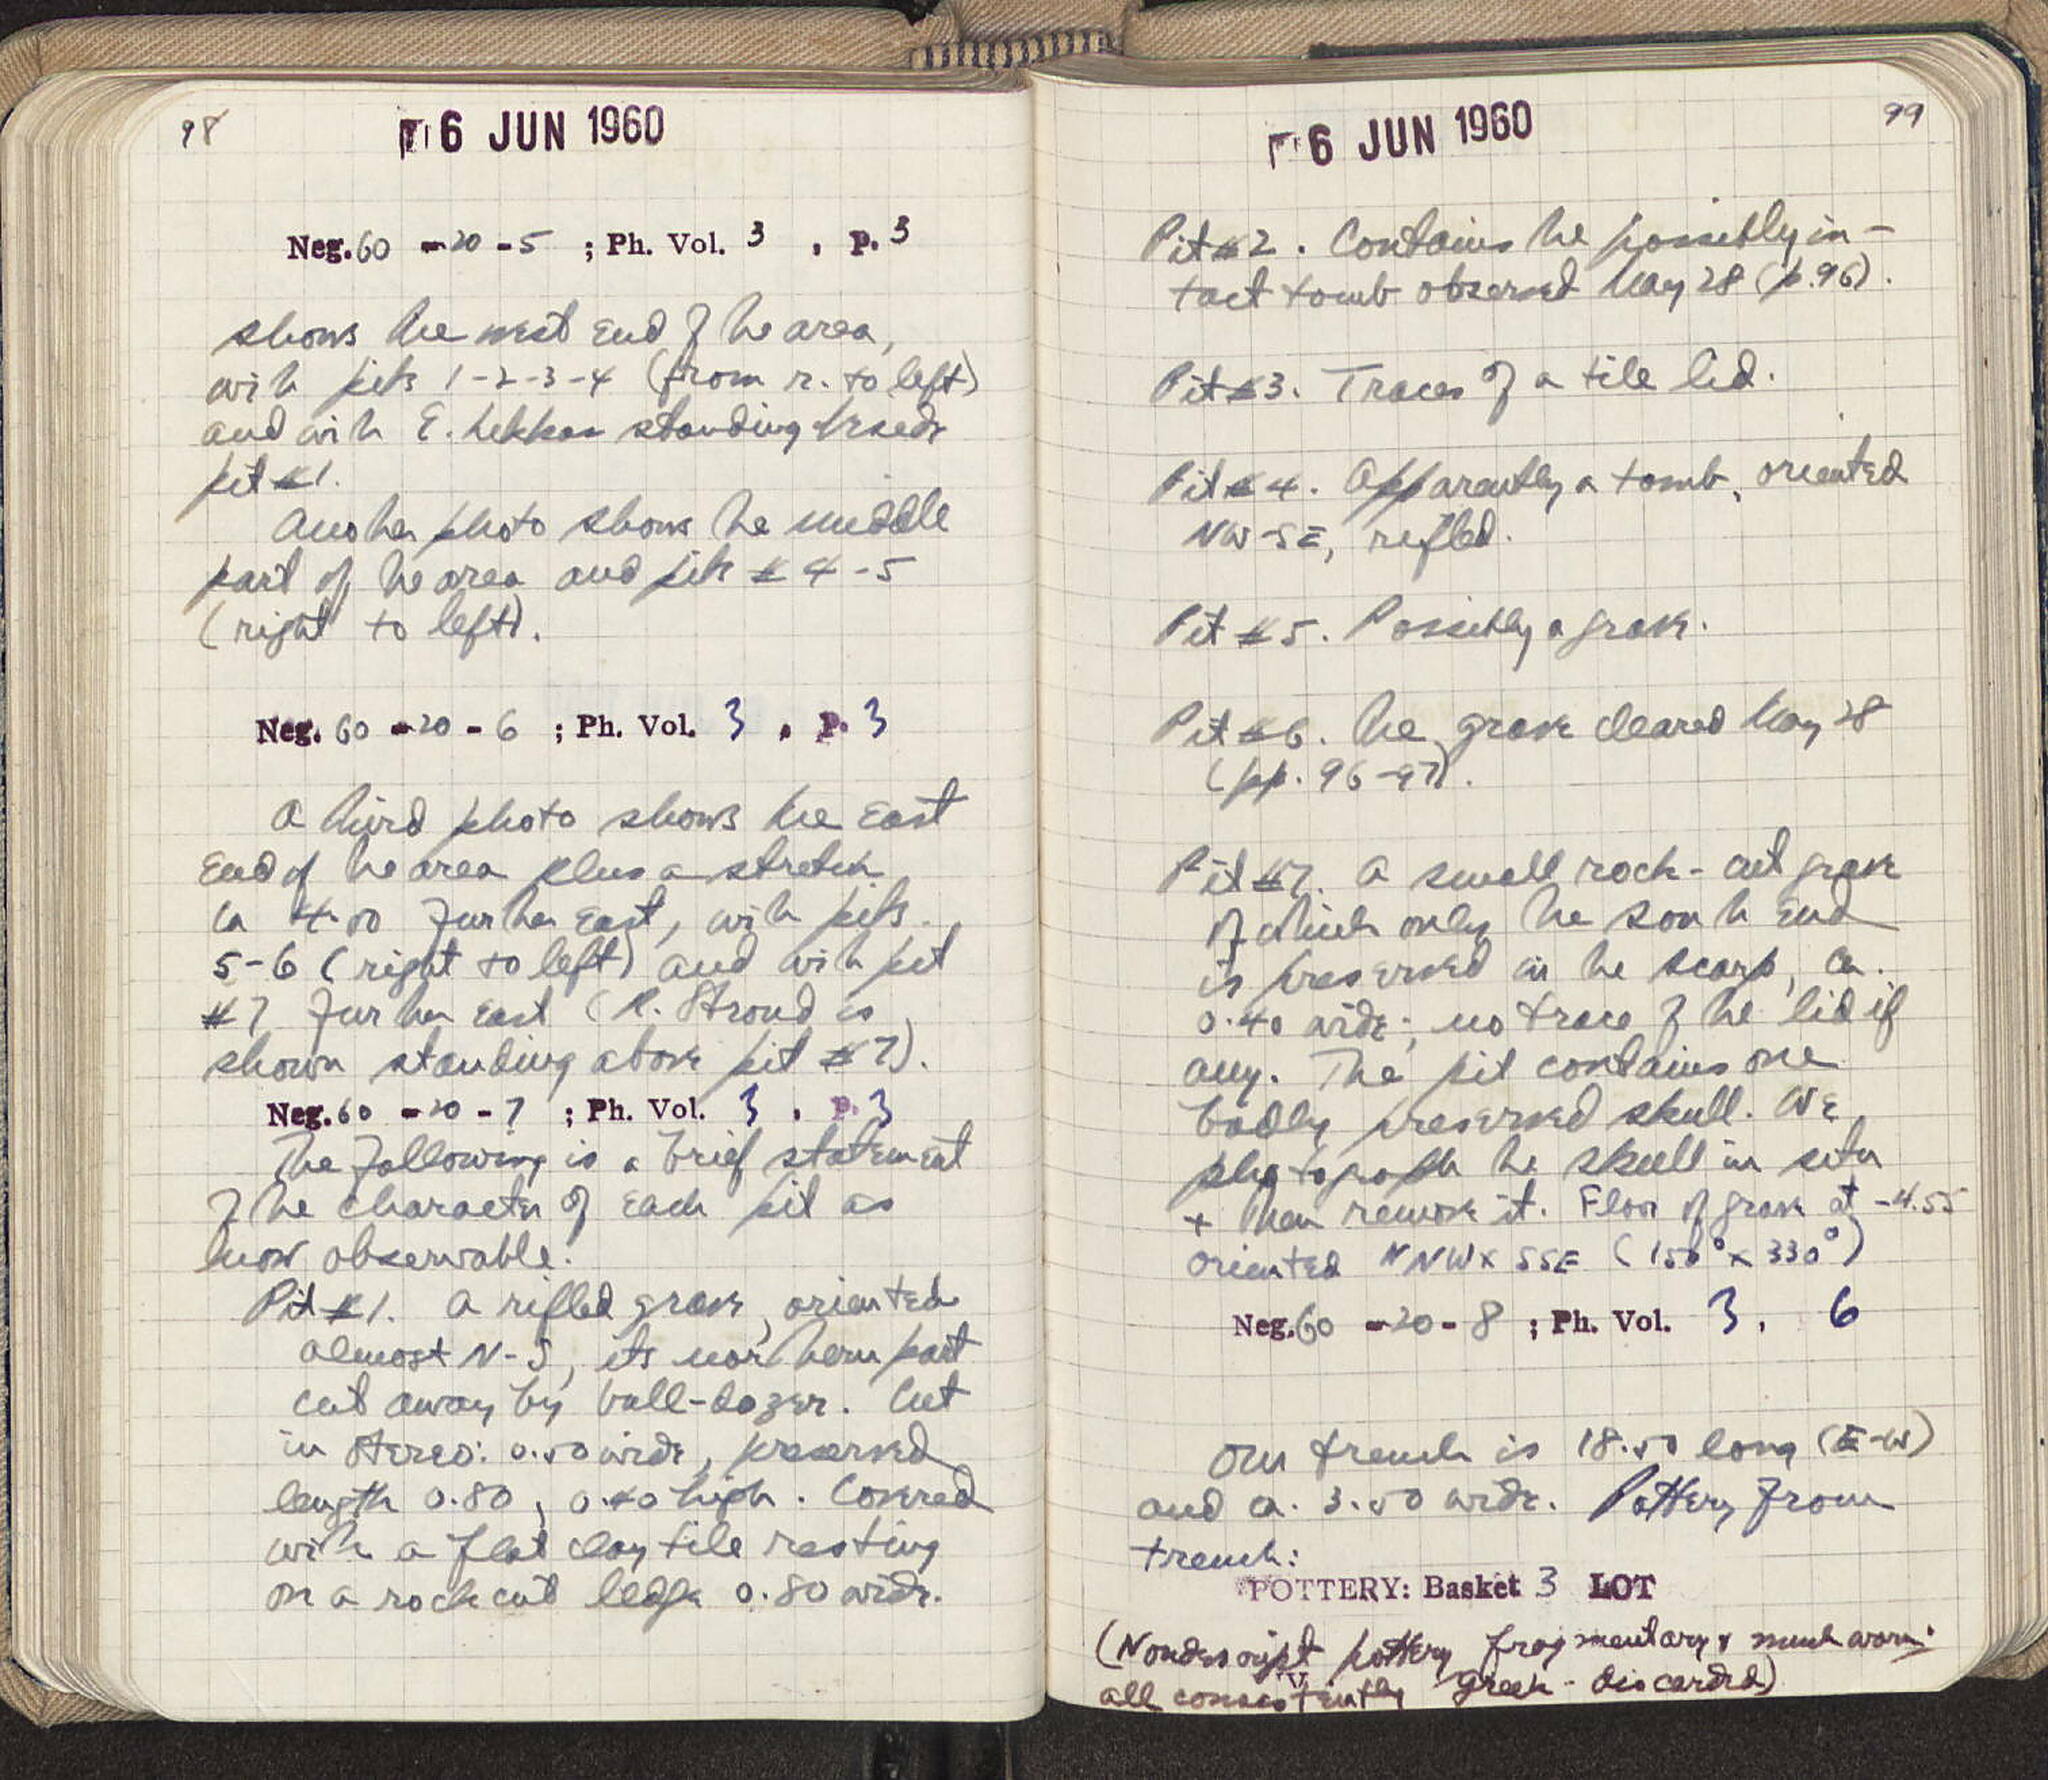 98
6 JUN 1960
Neg. 60 - 20 - 5 ; Ph. Vol. 3 , p. 3
shows the west end of the area,
with pits 1-2-3-4 (from r. to left)
and with E. Lekkas standing beside
pit #1.
Another photo shows the middle
part of the area and pits # 4-5
(right to left).
Neg. 60 - 20 - 6 ; Ph. Vol. 3 , p. 3
A third photo shows the east
end of the area plus a stretch
ca 4.00 further east, with pits
5-6 (right to left) and with pit
#7 further east (R. Stroud is
shown standing above pit #7).
Neg. 60 - 20 - 7 ; Ph. Vol. 3 , p. 3
The following is a brief statement
of the character of each pit as
now observable.
Pit #1. A rifled grave, oriented
almost N-S, its northern part
cut away by bull-dozer. Cut
in stereo: 0.50 wide, preserved
length 0.80, 0.40 high. Covered
with a flat clay tile resting
on a rock cut ledge 0.80 wide.
99
6 JUN 1960
Pit #2. Contains the possibly in-
tact tomb observed May 28 (p.96).
Pit #3. Traces of a tile lid.
Pit #4. Apparently a tomb, oriented
NW-SE, rifled.
Pit #5. Possibly a grave.
Pit #6. The grave cleared May 28
(pp. 96-97).
Pit #7. A small rock-cut grave
of which only the south end
is preserved in the scarp, ca.
0.40 wide; no trace of the lid if
any. The pit contains one
badly preserved skull. We
photograph the skull in situ
+ then remove it. Floor of grave at -4.55
oriented NNW x SSE (150° x 330°)
Neg. 60 - 20 - 8 ; Ph. Vol. 3 , 6
Our trench is 18.50 long (E-W)
and ca. 3.50 wide. Pottery from
trench:
POTTERY: Basket 3 LOT
(Nondescript pottery fragmentary & much worn:
all consistently Greek - discarded)